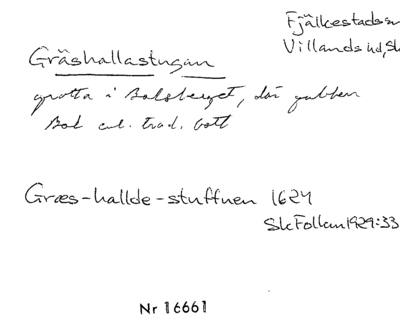 Fjälkestads sn
Villands hd, Sk
Gräshallastugan
grotta i Balsberget, där gubben
Bal enl. trad. bott
Græs-hallde-stuffnen 1624
SkFolkm 1929:33
Nr 16661